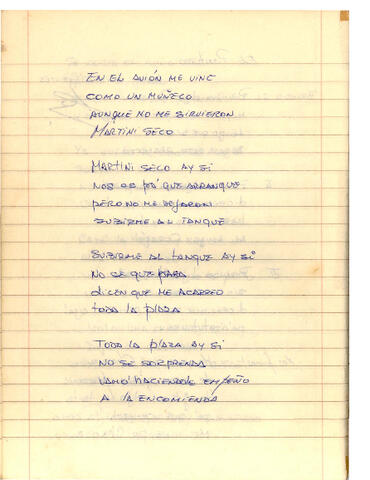 EN EL AVIÓN ME VINE
COMO UN MUÑECO
AUNQUE NO ME SIRVIERON
MARTINI SECO
MARTINI SECO AY SI
NOS CO PA' QUE ARRANQUE
PERO NO ME DEJARON
SUBIRME AL TANQUE
SUBIRME AL TANQUE AY SI
NO SE QUE PASA
DICEN QUE ME ACARREO
TODA LA PLAZA
TODA LA PLAZA AY SI
NO SE SORPRENDA
VAMO' HACIENDOLE EMPEÑO
A LA ENCOMIENDA